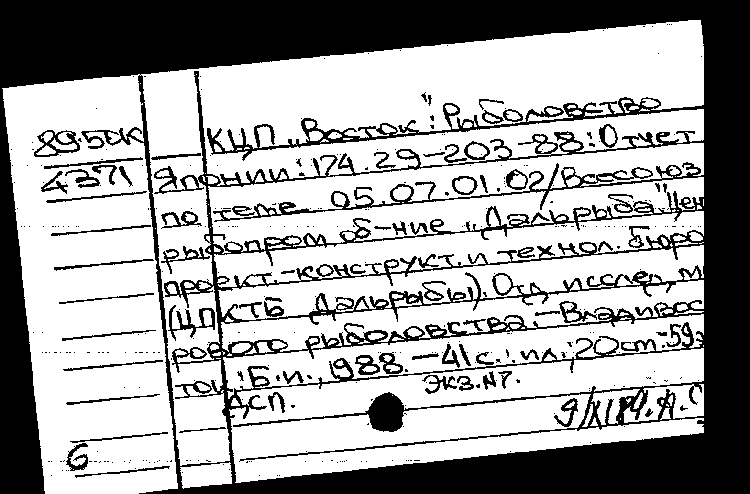 89-5ДК КЦП „Восток": Рыболовство
4371 Японии: 174.29-203-88: Отчет
по теме 05.07.01.02/Всесоюз
рыбопром об-ние „Дальрыба". Цен
проект.-конструкт. и технол. бюро
(ЦПКТБ Дальрыбы). Отд исслед. м
рового рыболовства.-Владивос
ток: Б.и., 1988.-41 с.: ил.; 20 см.-59э
ДСП. Экз. №7.
9/XI89.
6